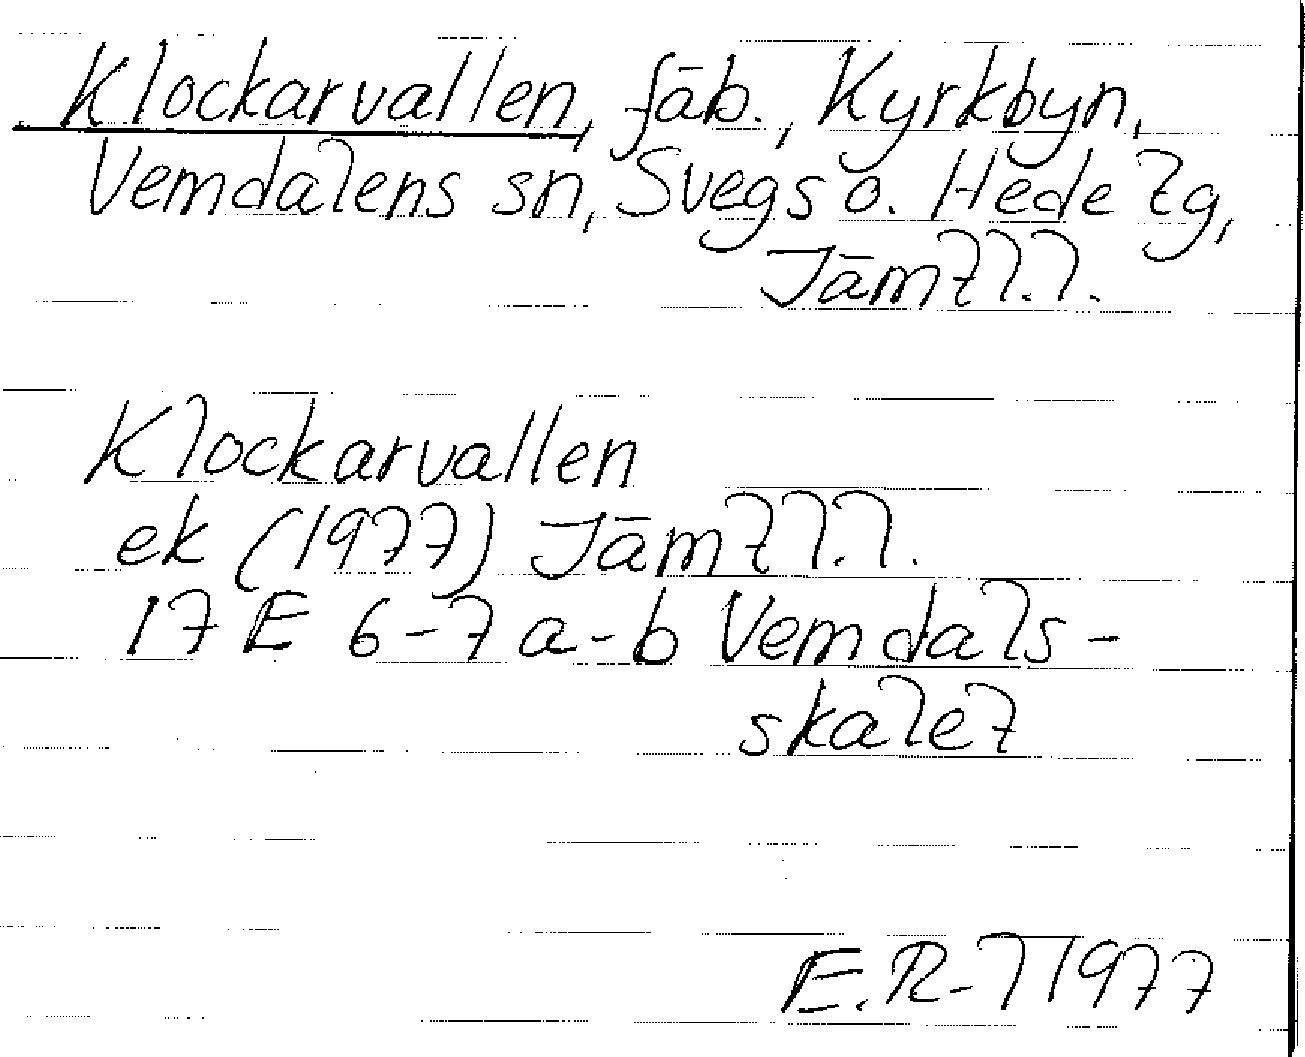 Klockarvallen, fäb., Kyrkbyn,
Vemdalens sn, Svegs o. Hede tg,
Jämtl.l.
Klockarvallen
ek (1977) Jämtl.l.
17 E 6-7 a-b Vemdals-
skalet
E.R-l 1977